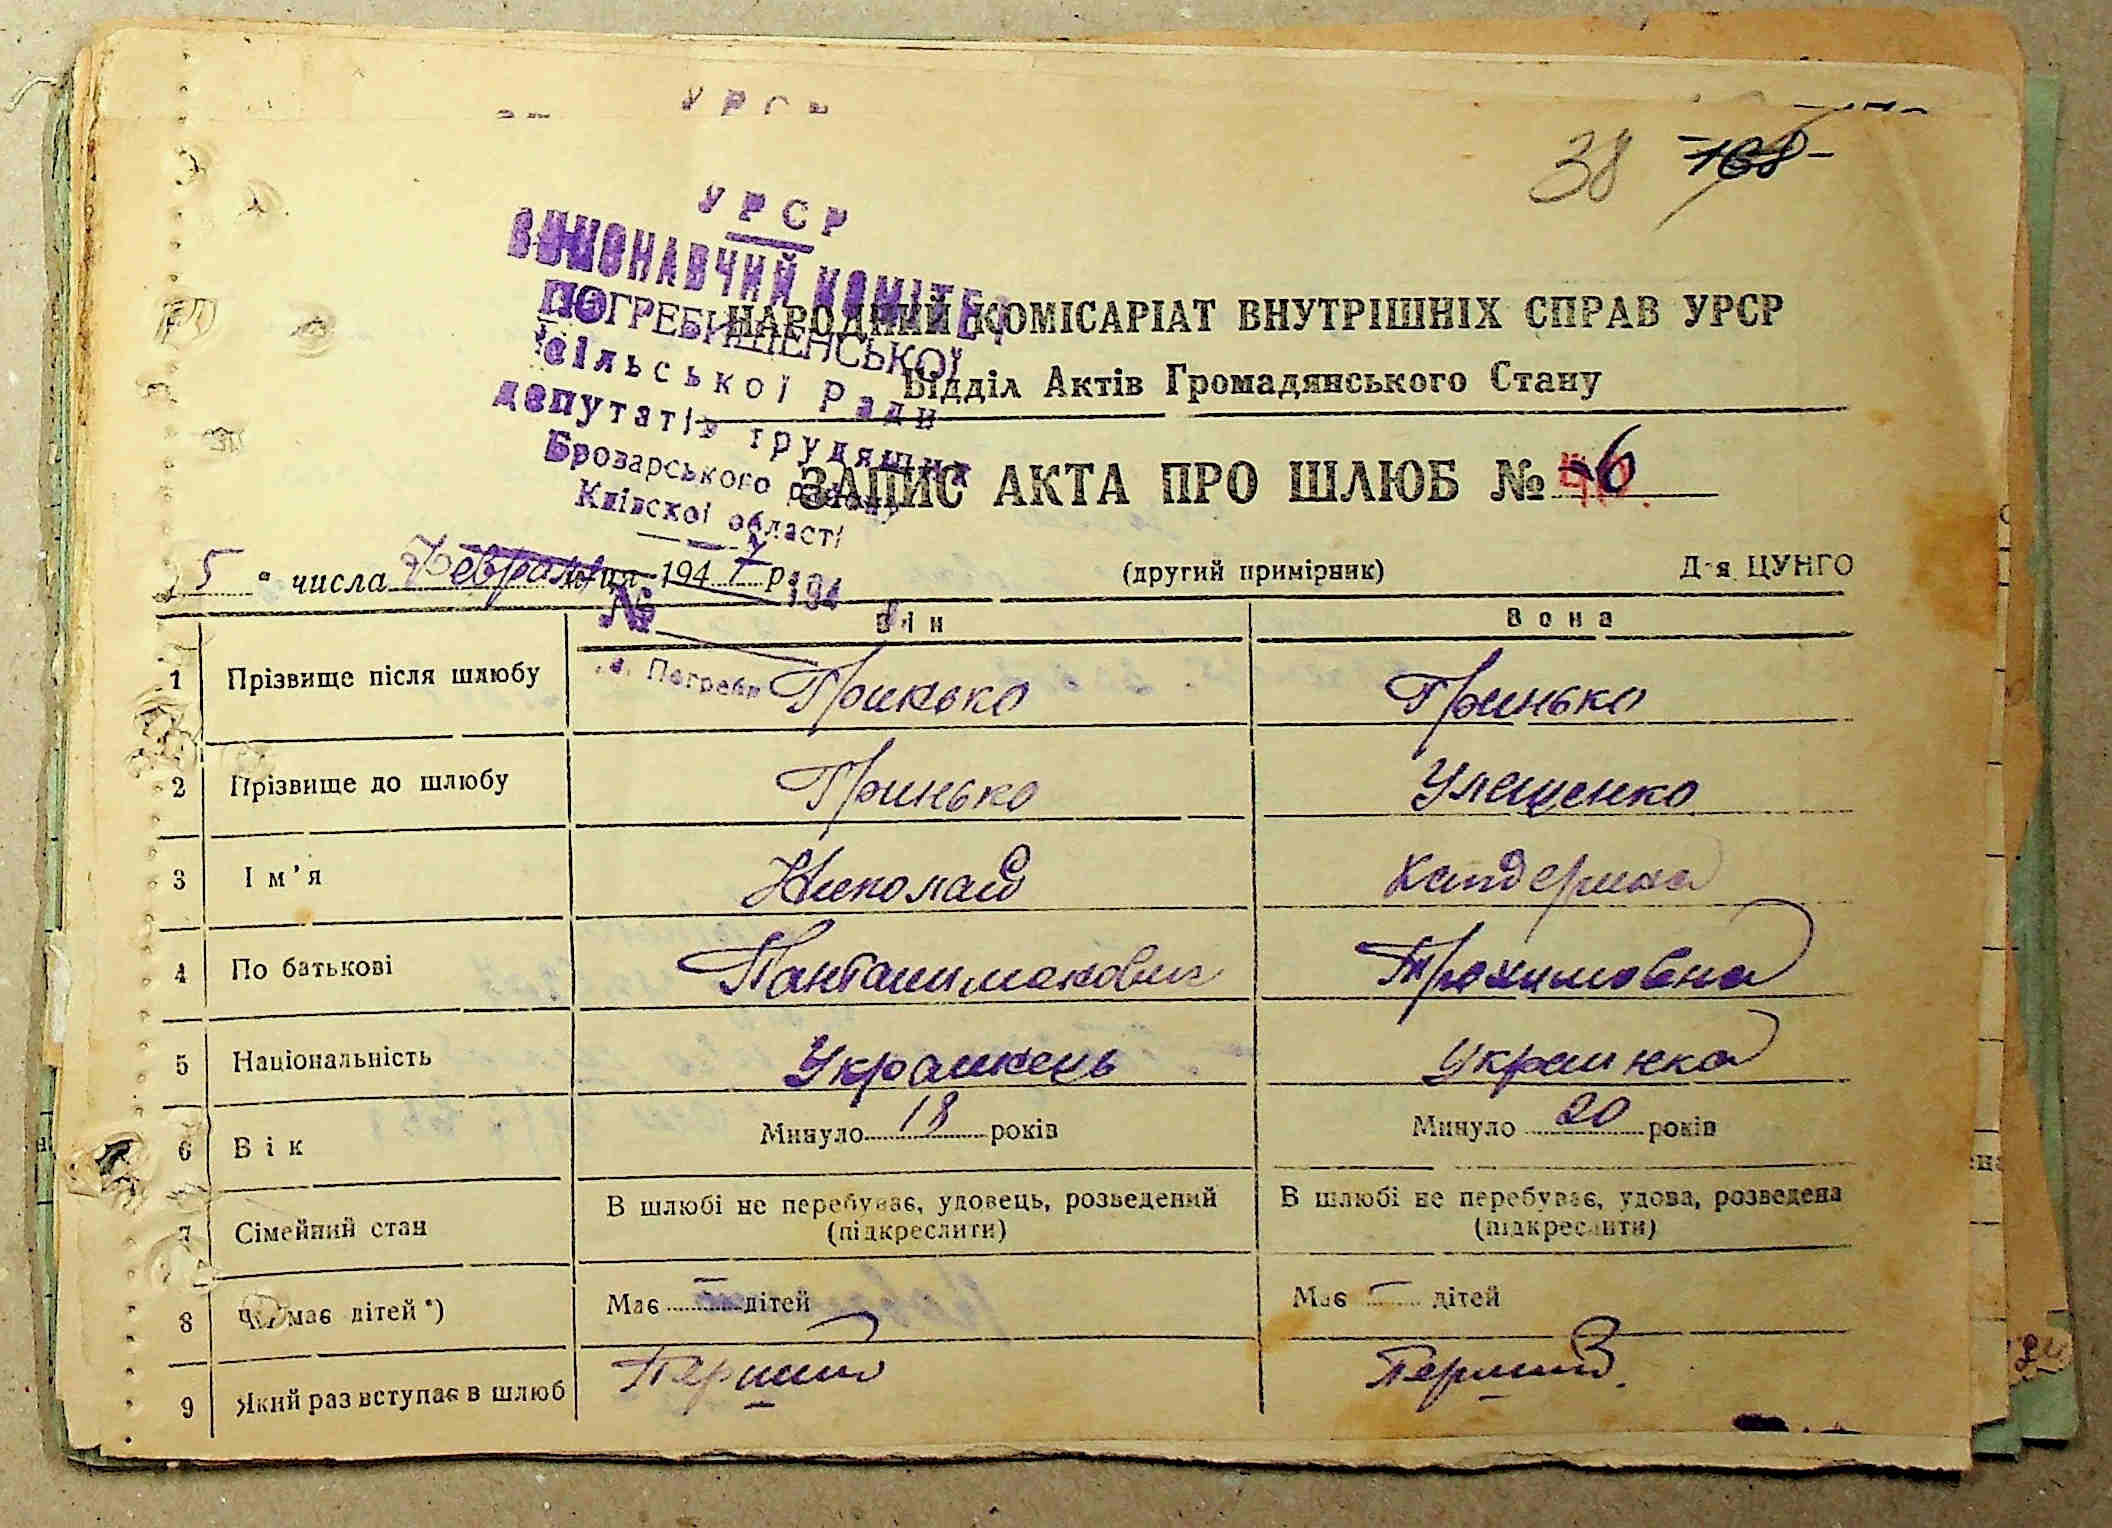 УРСР
38 168
УРСР
ВИКОНАВЧИЙ КОМІТЕТ
ПОГРЕБИЩЕНСЬКОЇ
сільської Ради
депутатів трудящих
Броварського району
Київскої області
№ 194
с. Погреби
НАРОДНИЙ КОМІСАРІАТ ВНУТРІШНІХ СПРАВ УРСР
Відділ Актів Громадянського Стану
ЗАПИС АКТА ПРО ШЛЮБ № 6
5 " числа Февраля м-ця 1947 р. (другий примірник) Д-я ЦУНГО
Він Вона
1 Прізвище після шлюбу Гринько Гринько
2 Прізвище до шлюбу Гринько Улещенко
3 Ім'я Николай Катерина
4 По батькові Трохимовна
5 Національність Украинець Украинка
6 Вік Минуло 18 років Минуло 20 років
7 Сімейний стан В шлюбі не перебуває, удовець, розведений (підкреслити) В шлюбі не перебуває, удова, розведена (підкреслити)
8 Чи має дітей*) Має – дітей Має – дітей
9 Який раз вступає в шлюб Перший Перший